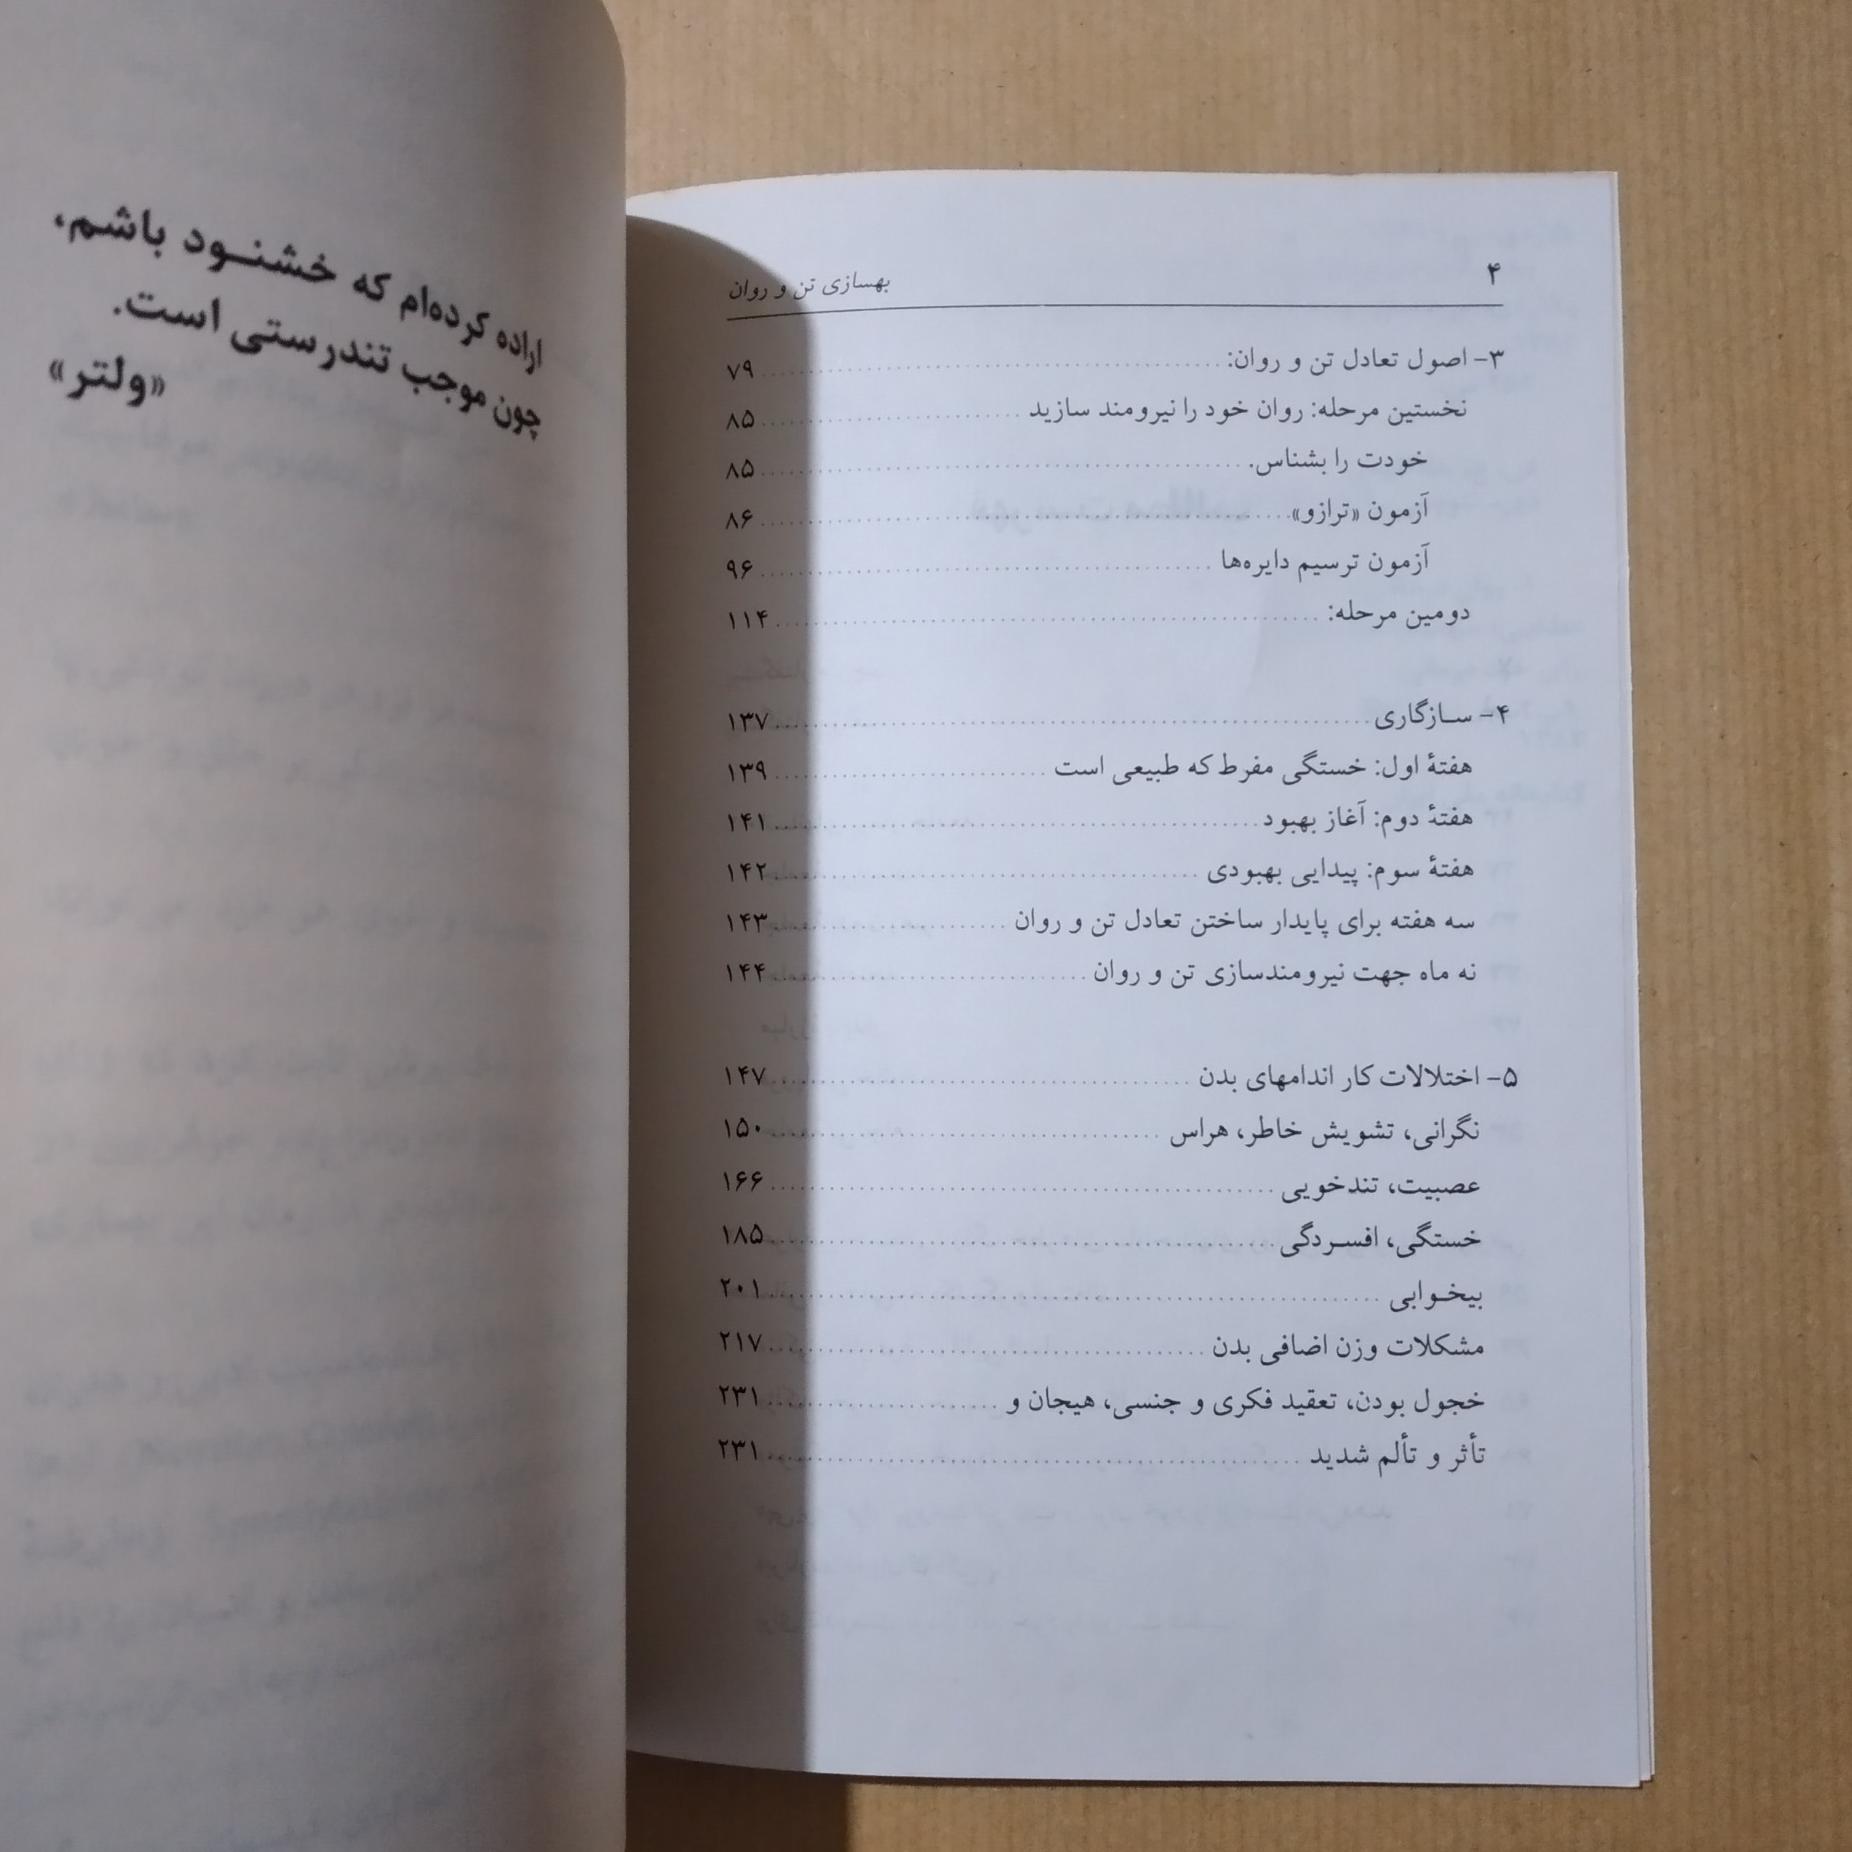 ۴
بهسازی تن و روان
۳- اصول تعادل تن و روان: ۷۹
نخستین مرحله: روان خود را نیرومند سازید ۸۵
خودت را بشناس. ۸۵
آزمون «ترازو» ۸۶
آزمون ترسیم دایره‌ها ۹۶
دومین مرحله: ۱۱۴
۴- سازگاری ۱۳۷
هفتهٔ اول: خستگی مفرط که طبیعی است ۱۳۹
هفتهٔ دوم: آغاز بهبود ۱۴۱
هفتهٔ سوم: پیدایی بهبودی ۱۴۲
سه هفته برای پایدار ساختن تعادل تن و روان ۱۴۳
نه ماه جهت نیرومندسازی تن و روان ۱۴۴
۵- اختلالات کار اندامهای بدن ۱۴۷
نگرانی، تشویش خاطر، هراس ۱۵۰
عصبیت، تندخویی ۱۶۶
خستگی، افسردگی ۱۸۵
بیخوابی ۲۰۱
مشکلات وزن اضافی بدن ۲۱۷
خجول بودن، تعقید فکری و جنسی، هیجان و ۲۳۱
تأثر و تألم شدید ۲۳۱
اراده کرده‌ام که خشنود باشم،
چون موجب تندرستی است.
«ولتر»